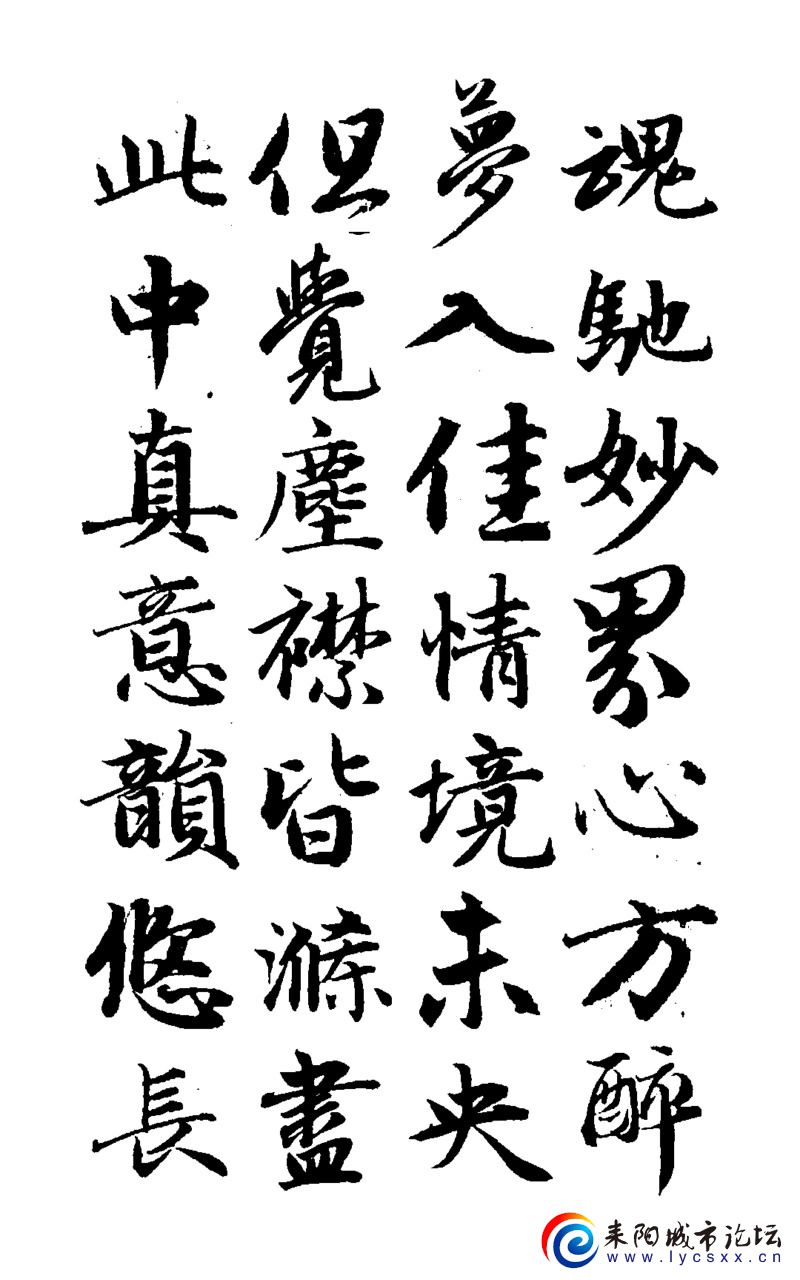 魂馳妙界心方醉
夢入佳情境未央
但覺塵襟皆滌盡
此中真意韻悠長
耒阳城市论坛
www.lycsxx.cn